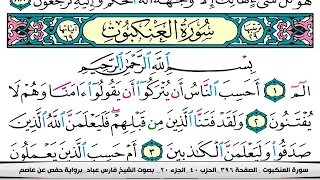 هو كل شيء هالك إلا وجهه له الحكم وإليه ترجعون
سُورَةُ الْعَنكَبُوتِ
بِسْمِ اللَّهِ الرَّحْمَٰنِ الرَّحِيمِ
الٓمٓ ١ أَحَسِبَ النَّاسُ أَن يُتْرَكُوٓا۟ أَن يَقُولُوٓا۟ ءَامَنَّا وَهُمْ لَا
يُفْتَنُونَ ٢ وَلَقَدْ فَتَنَّا الَّذِينَ مِن قَبْلِهِمْ فَلَيَعْلَمَنَّ اللَّهُ الَّذِينَ
صَدَقُوا۟ وَلَيَعْلَمَنَّ الْكَٰذِبِينَ ٣ أَمْ حَسِبَ الَّذِينَ يَعْمَلُونَ
سورة العنكبوت _ الصفحة ٣٩٦_ الحزب ٤٠_ الجزء ٢٠_ بصوت الشيخ فارس عباد_ برواية حفص عن عاصم